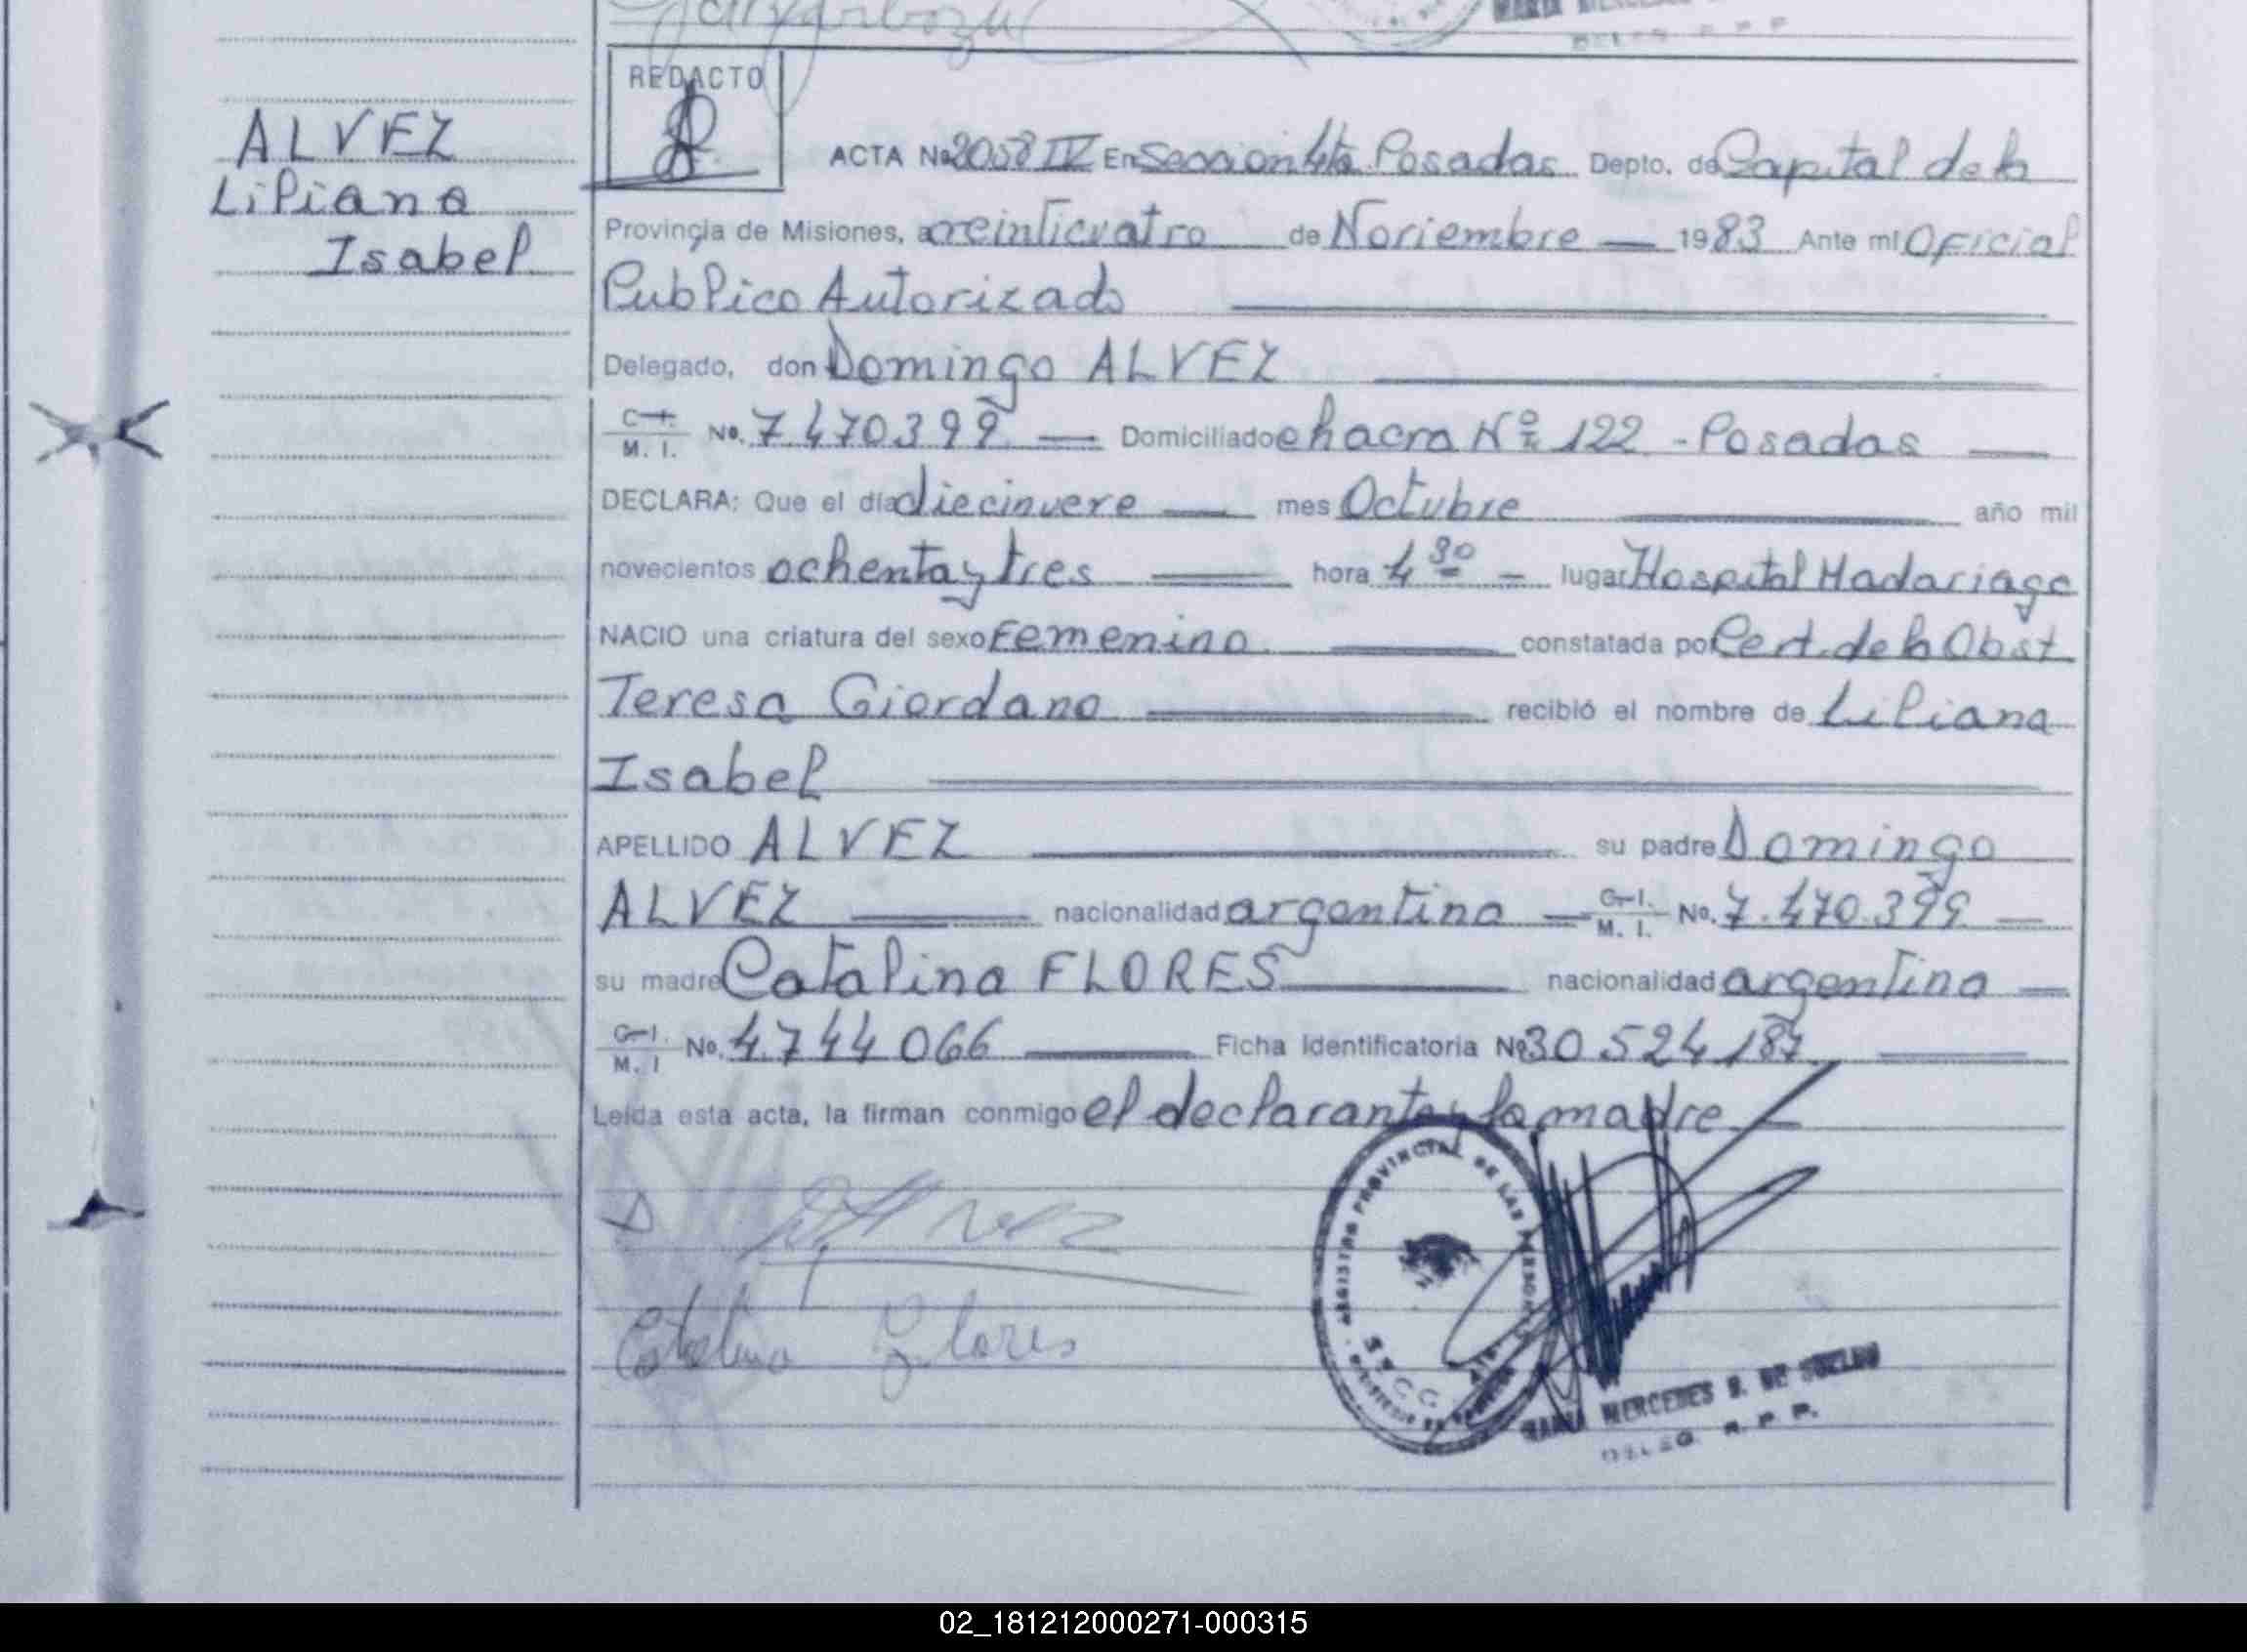 REDACTO
ALVEZ
Liliana
Isabel
ACTA No 2058 IV En Seccion 4ta Posadas Depto. de Capital de la
Provincia de Misiones, a veinticuatro de Noviembre 1983 Ante mi Oficial
Publico Autorizado
Delegado, don Domingo ALVEZ
C. I. M. I. No. 7.470.399 Domiciliado chacra Nº 122 - Posadas
DECLARA: Que el día diecinueve mes Octubre año mil
novecientos ochenta y tres hora 4 30 lugar Hospital Madariaga
NACIO una criatura del sexo Femenino constatada por Cert. de la Obst
Teresa Giordano recibió el nombre de Liliana
Isabel
APELLIDO ALVEZ su padre Domingo
ALVEZ nacionalidad argentina C. I. M. I. No. 7.470.399
su madre Catalina FLORES nacionalidad argentina
C. I. M. I No. 4.744.066 Ficha Identificatoria No 30.524.187
Leída esta acta, la firman conmigo el declarante y la madre
Catalina Flores
REGISTRO PROVINCIAL DE LAS PERSONAS
MARIA MERCEDES DE
DELEG. R. P. P.
02_181212000271-000315